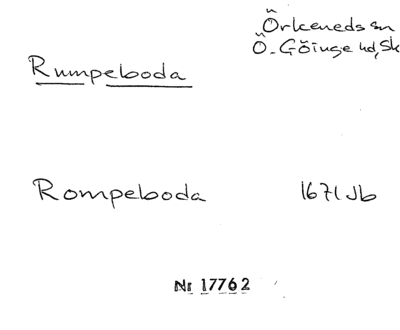 Örkeneds sn
Ö. Göinge hd, Sk
Rumpeboda
Rompeboda 1671 Jb
Nr 17762